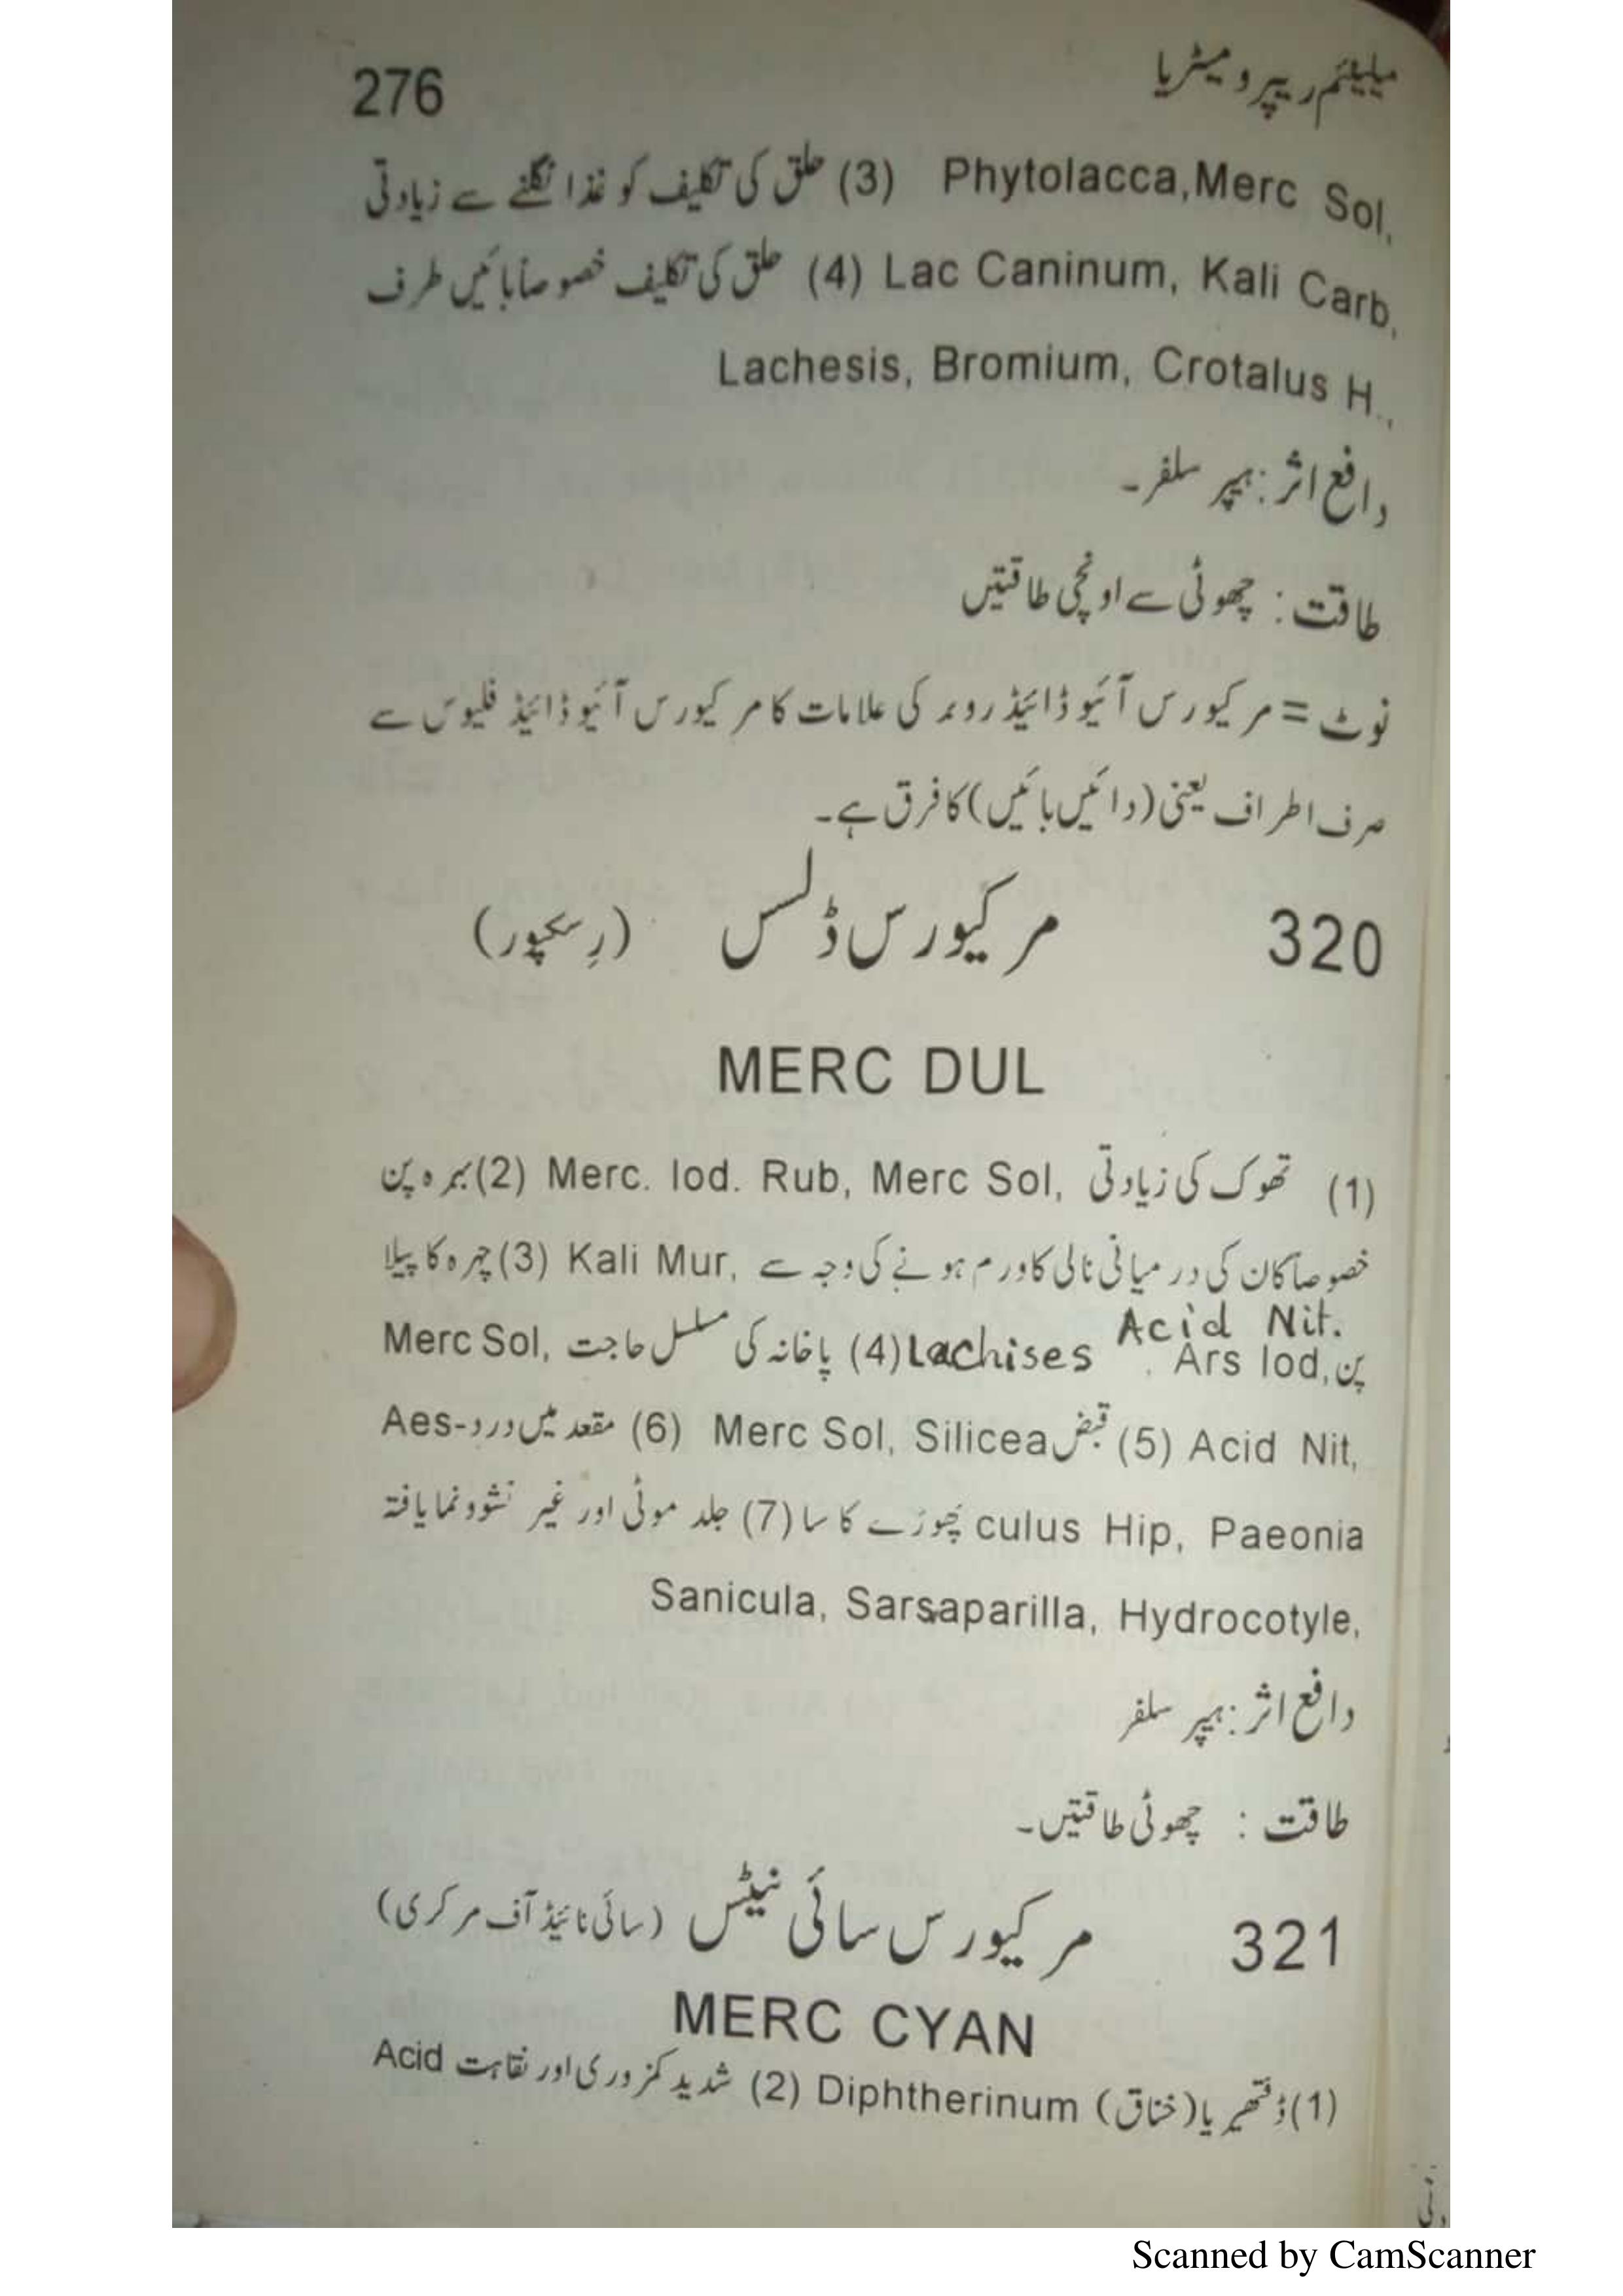 میلینئم ریپرومیٹریا 276
Phytolacca,Merc Sol, (3) حلق کی تکلیف کو غذا نگلنے سے زیادتی
Lac Caninum, Kali Carb, (4) حلق کی تکلیف خصوصاً بائیں طرف
Lachesis, Bromium, Crotalus H.,
دافع اثر: ہیپر سلفر۔
طاقت: چھوٹی سے اونچی طاقتیں
نوٹ = مرکیورس آئیوڈائیڈ روبر کی علامات کا مرکیورس آئیوڈائیڈ فلیوس سے
صرف اطراف یعنی (دائیں بائیں) کا فرق ہے۔
320 مرکیورس ڈلس (رسکپور)
MERC DUL
(1) تھوک کی زیادتی Merc. Iod. Rub, Merc Sol, (2) بہرہ پن
خصوصاً کان کی درمیانی نالی کا ورم ہونے کی وجہ سے Kali Mur, (3) چہرہ کا پیلا
Acid Nit.
پن Ars Iod, Lachises (4) پاخانہ کی مسلسل حاجت Merc Sol,
Acid Nit, (5) قبض Merc Sol, Silicea (6) مقعد میں درد Aes-
culus Hip, Paeonia پھوڑے کا سا (7) جلد موٹی اور غیر نشوونما یافتہ
Sanicula, Sarsaparilla, Hydrocotyle,
دافع اثر: ہیپر سلفر
طاقت : چھوٹی طاقتیں۔
321 مرکیورس سائی نیٹس (سائی نائیڈ آف مرکری)
MERC CYAN
(1) ڈفتھیریا (خناق) Diphtherinum (2) شدید کمزوری اور نقاہت Acid
Scanned by CamScanner